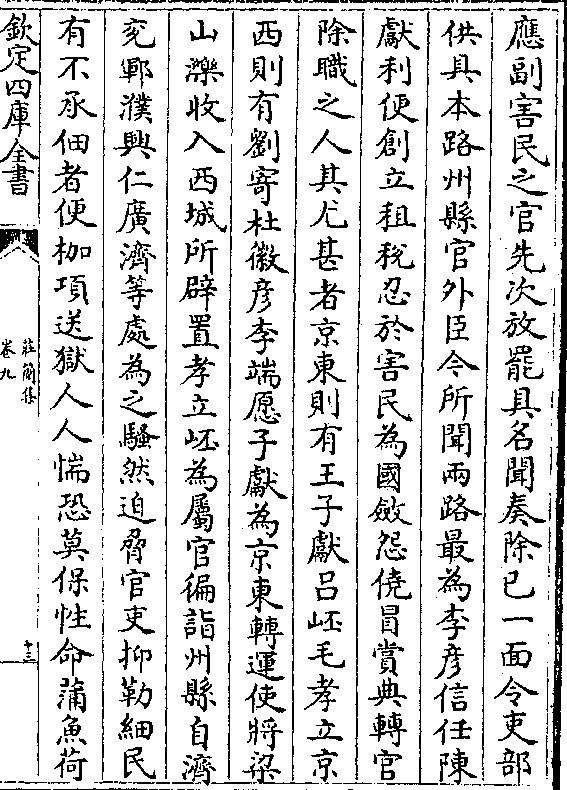 應副害民之官先次放罷具名聞奏除已一面令吏部
供具本路州縣官外臣令所聞兩路最為李彦信任陳
獻利便創立租稅忍於害民為國斂怨僥冒賞典轉官
除職之人其尤甚者京東則有王子獻吕岯毛孝立京
西則有劉寄杜徽彦李端愿子獻為京東轉運使將梁
山濼收入西城所辟置孝立岯為屬官徧詣州縣自濟
兖鄆濮興仁廣濟等處為之騷然迫脅官吏抑勒細民
有不承佃者便枷項送獄人人惴恐莫保性命蒲魚荷
欽定四庫全書
莊簡集
卷九
十三